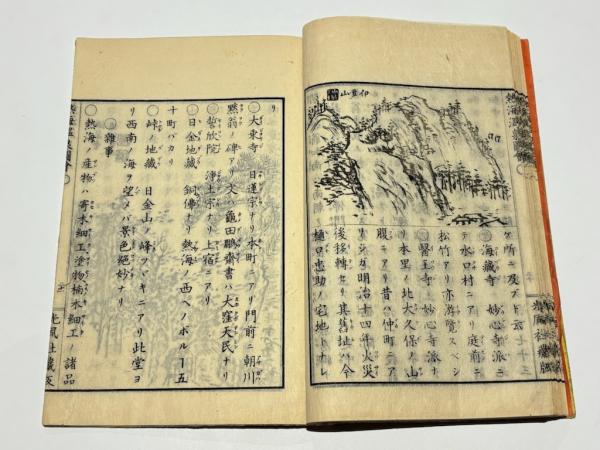 伊豆山
ケ所ニ及ブト云
海蔵寺 妙心寺派ニ
テ水口村ニアリ庭前ニ
松竹アリ亦游覧スベシ
醫王寺 妙心寺派ナ
リ本里ノ北大久保ノ山
腹ニアリ昔ハ仲町ニア
リシガ明治十四年火災
後移轉セリ其舊址ハ今
樋口忠助ノ宅地トナレ
リ
大東寺 日蓮宗ナリ本町ニアリ門前ニ朝川
黙翁ノ碑アリ文ハ龜田鵬齋書ハ大窪天民ナリ
誓欣院 浄土宗ナリ上宿ニアリ
日金地藏 銅佛ナリ熱海ノ西ヘノボルー五
十町バカリ
峠ノ地藏 日金山ノ峰ツヾキニアリ此堂ヨ
リ西南ノ海ヲ望メバ景色絶妙ナリ
雜事
熱海ノ産物ハ寄木細工塗物楠木細工ノ諸品